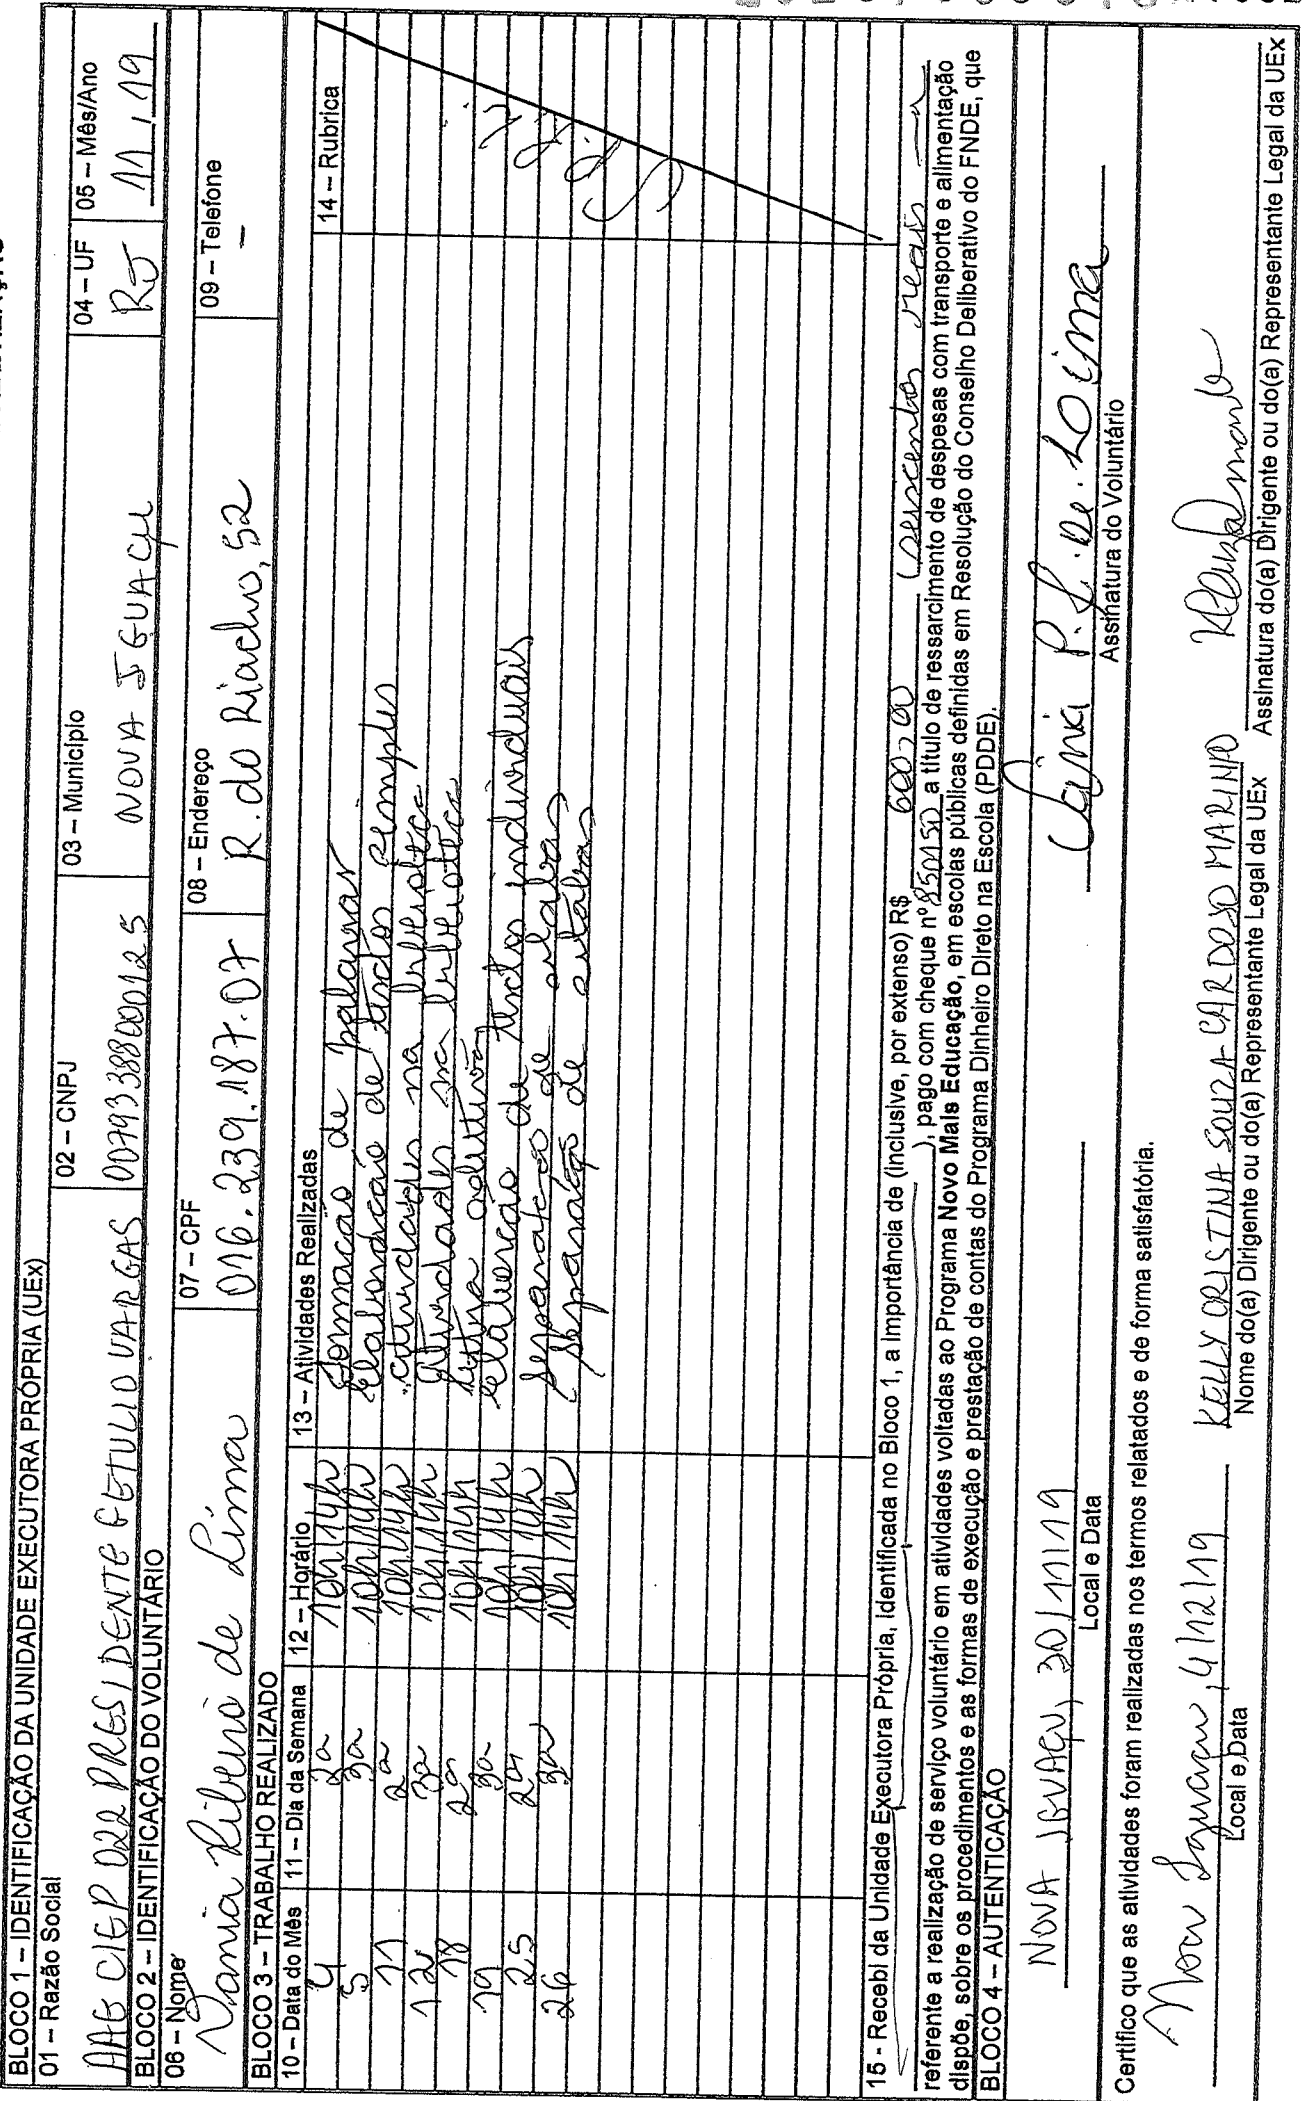 BLOCO 1 – IDENTIFICAÇÃO DA UNIDADE EXECUTORA PRÓPRIA (UEx)
01 – Razão Social 02 – CNPJ 03 – Município 04 – UF 05 – Mês/Ano
AAE CIEP 022 PRESIDENTE GETULIO VARGAS 00793388000125 NOVA IGUAÇU RJ 11/19
BLOCO 2 – IDENTIFICAÇÃO DO VOLUNTÁRIO
06 – Nome 07 – CPF 08 – Endereço 09 – Telefone
Vania Ribeiro de Lima 016.239.187.07 R. do Riacho, 52 –
BLOCO 3 – TRABALHO REALIZADO
10 – Data do Mês 11 – Dia da Semana 12 – Horário 13 – Atividades Realizadas 14 – Rubrica
4 2a 10h/14h Formação de palavras
5 3a 10h/14h Elaboração de textos simples
11 2a 10h/14h atividades na biblioteca
12 3a 10h/14h Atividades na biblioteca
18 2a 10h/14h Leitura coletiva
19 3a 10h/14h elaboração de textos individuais
25 2a 10h/14h Separação de sílabas
26 3a 10h/14h Separação de sílabas
15 - Recebi da Unidade Executora Própria, identificada no Bloco 1, a importância de (inclusive, por extenso) R$ 600,00 (seiscentos reais
), pago com cheque nº 850150 a título de ressarcimento de despesas com transporte e alimentação
referente a realização de serviço voluntário em atividades voltadas ao Programa Novo Mais Educação, em escolas públicas definidas em Resolução do Conselho Deliberativo do FNDE, que
dispõe, sobre os procedimentos e as formas de execução e prestação de contas do Programa Dinheiro Direto na Escola (PDDE).
BLOCO 4 – AUTENTICAÇÃO
NOVA IGUAÇU, 30/11/19 Vânia P. de Lima
Local e Data Assinatura do Voluntário
Certifico que as atividades foram realizadas nos termos relatados e de forma satisfatória.
Nova Iguaçu, 4/12/19 KELLY CRISTINA SOUZA CARDOSO MARINHO
Local e Data Nome do(a) Dirigente ou do(a) Representante Legal da UEx Assinatura do(a) Dirigente ou do(a) Representante Legal da UEx